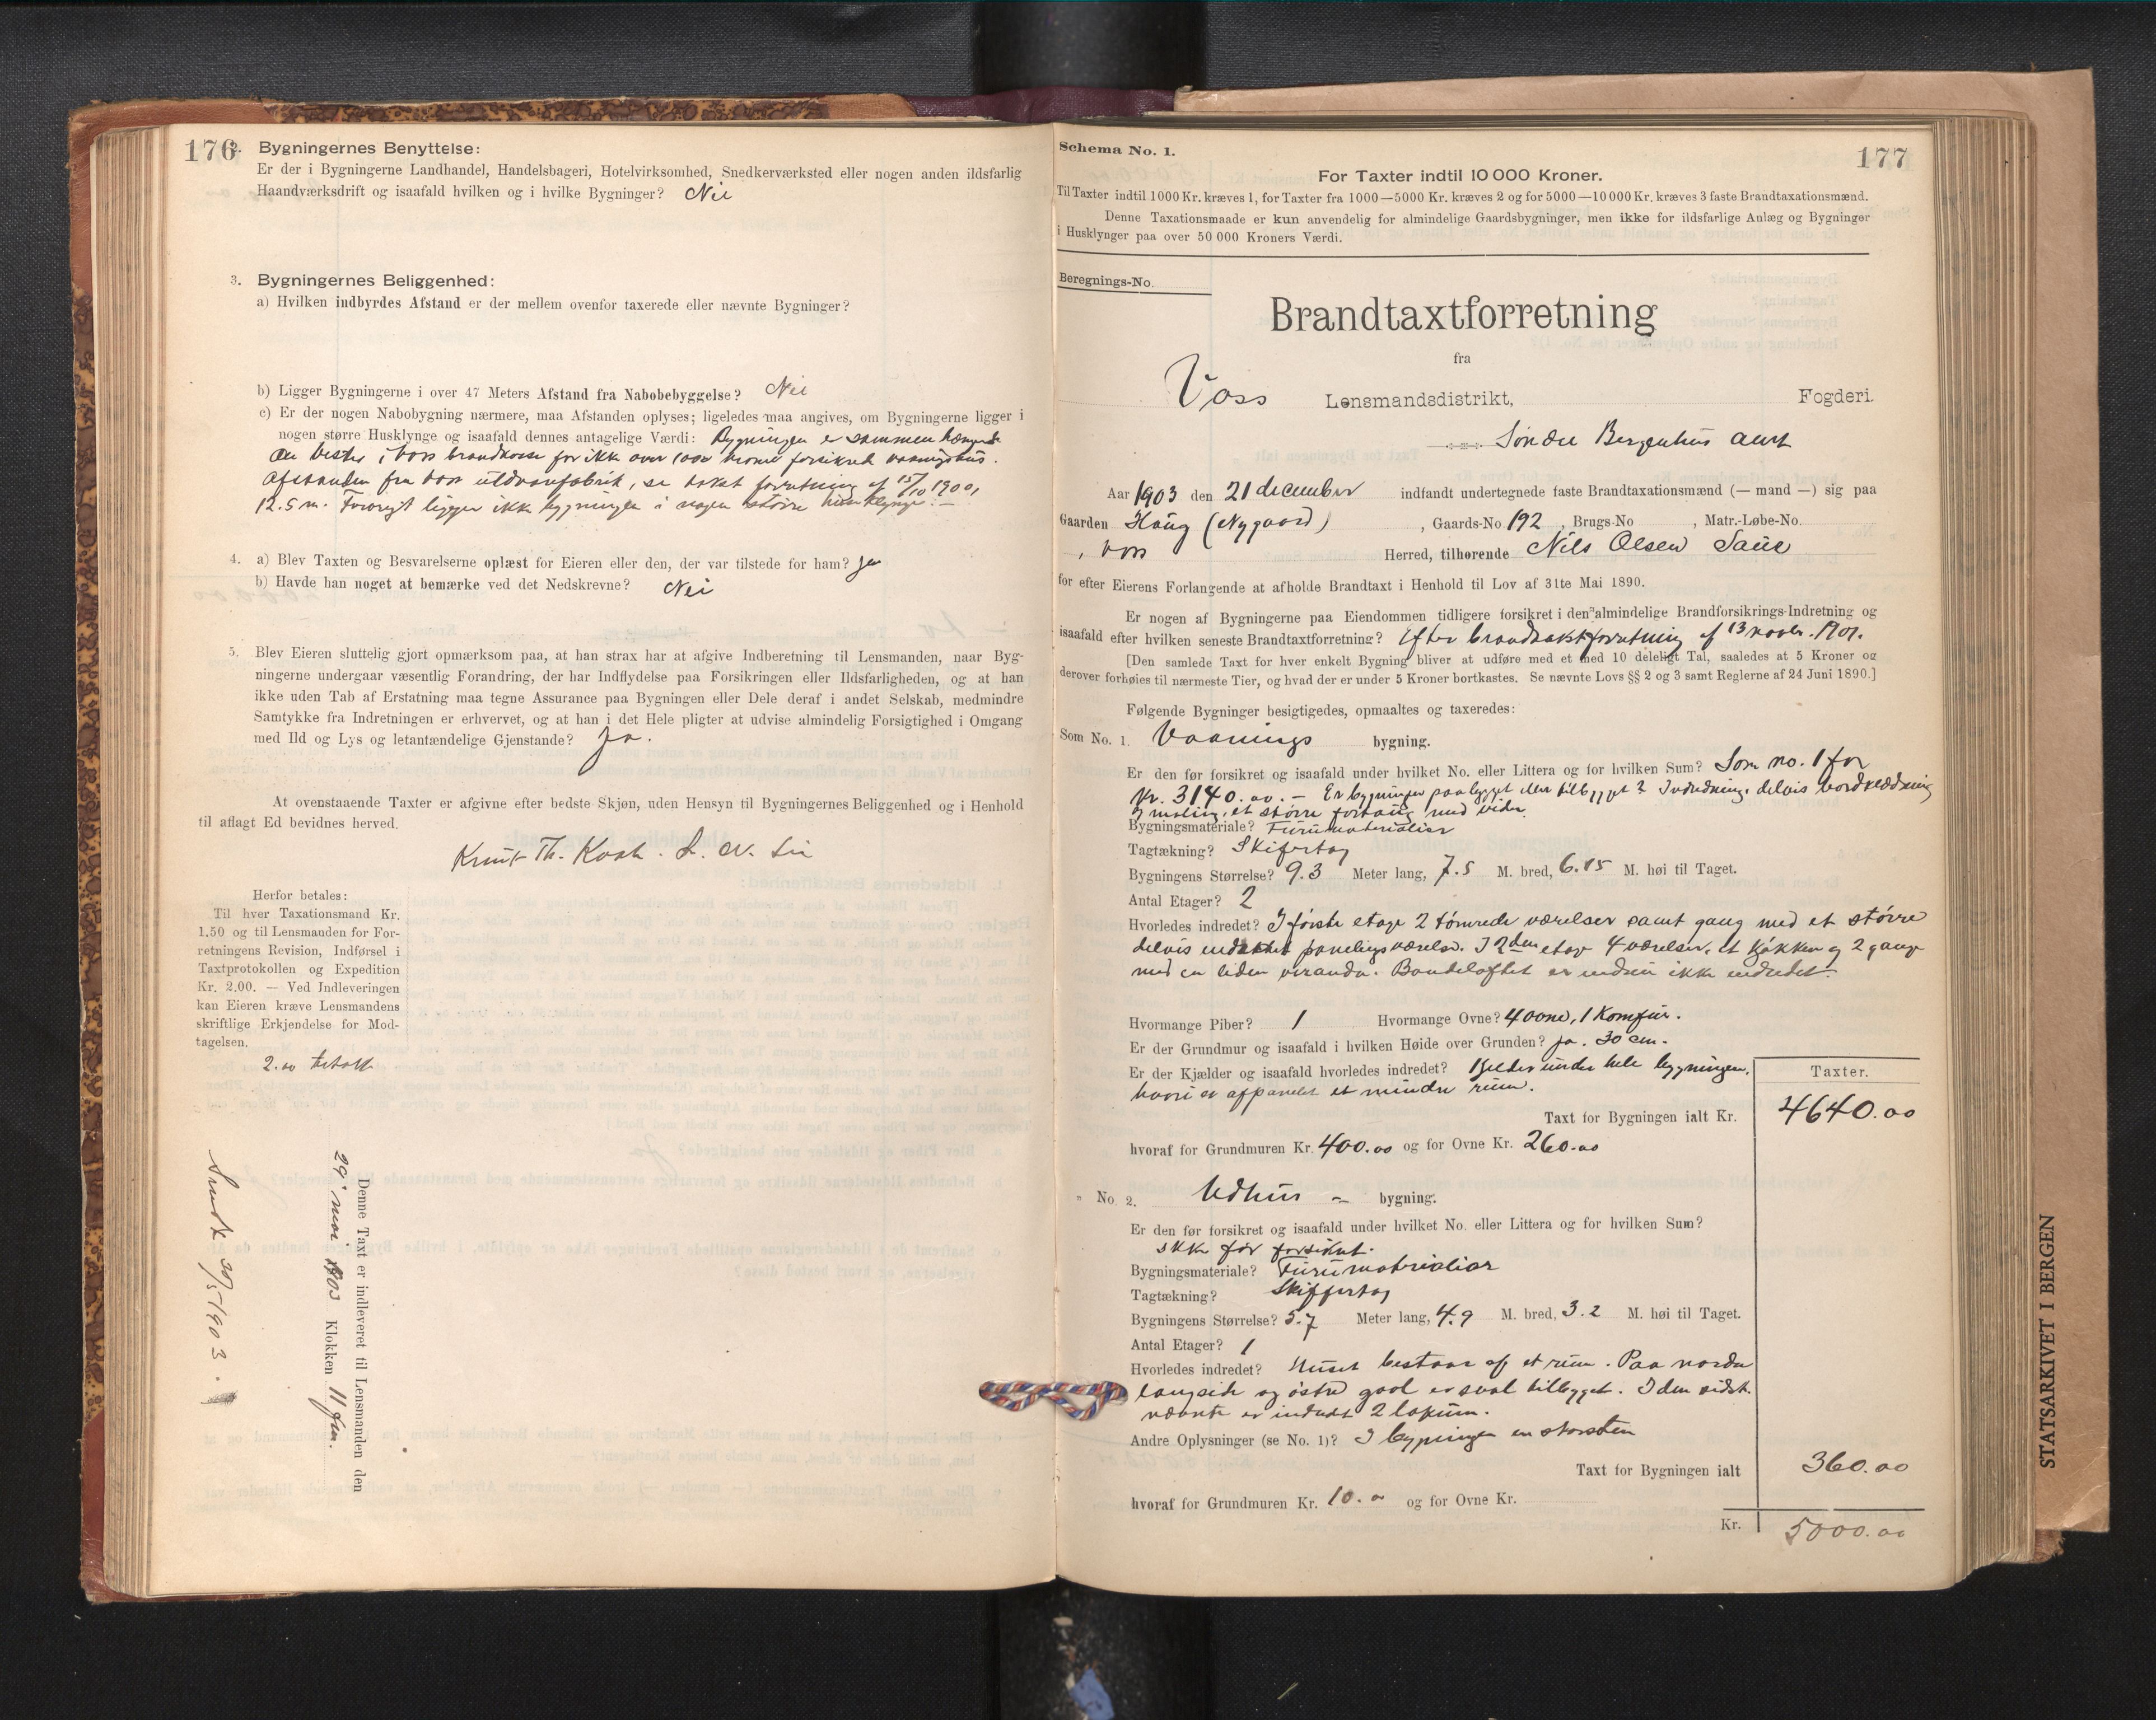 176
2. Bygningernes Benyttelse:
Er der i Bygningerne Landhandel, Handelsbageri, Hotelvirksomhed, Snedkerværksted eller nogen anden ildsfarlig
Haandværksdrift og isaafald hvilken og i hvilke Bygninger? Nei
3. Bygningernes Beliggenhed:
a) Hvilken indbyrdes Afstand er der mellem ovenfor taxerede eller nævnte Bygninger?
b) Ligger Bygningerne i over 47 Meters Afstand fra Nabobebyggelse? Nei
c) Er der nogen Nabobygning nærmere, maa Afstanden oplyses; ligeledes maa angives, om Bygningerne ligger i
nogen større Husklynge og isaafald dennes antagelige Værdi: Bygningen er sammenhængende
i Voss brandkasse for ikke over 1000 kroner forsikred vaaningshus.
Afstanden fra Voss uldvarefabrik, se takst forretning af 15/10 1900,
12.5 m. Forøvrigt ligger ikke bygningen i nogen større husklynge. —
4. a) Blev Taxten og Besvarelserne oplæst for Eieren eller den, der var tilstede for ham? Ja
b) Havde han noget at bemærke ved det Nedskrevne? Nei
5. Blev Eieren sluttelig gjort opmærksom paa, at han strax har at afgive Indberetning til Lensmanden, naar Byg-
ningerne undergaar væsentlig Forandring, der har Indflydelse paa Forsikringen eller Ildsfarligheden, og at han
ikke uden Tab af Erstatning maa tegne Assurance paa Bygningen eller Dele deraf i andet Selskab, medmindre
Samtykke fra Indretningen er erhvervet, og at han i det Hele pligter at udvise almindelig Forsigtighed i Omgang
med Ild og Lys og letantændelige Gjenstande? Ja.
At ovenstaaende Taxter er afgivne efter bedste Skjøn, uden Hensyn til Bygningernes Beliggenhed og i Henhold
til aflagt Ed bevidnes herved.
Knut Th. L. N. Lie
Herfor betales:
Til hver Taxationsmand Kr.
1,50 og til Lensmanden for For-
retningens Revision, Indførsel i
Taxtprotokollen og Expedition
Kr. 2.00. — Ved Indleveringen
kan Eieren kræve Lensmandens
skriftlige Erkjendelse for Mod-
tagelsen.
2.00 betalt
Denne Taxt er indleveret til Lensmanden den
29 mai 1903 Klokken 11 fm.
Sendt 30/5-1903.
Schema No. 1.
177
For Taxter indtil 10 000 Kroner.
Til Taxter indtil 1000 Kr. kræves 1, for Taxter fra 1000—5000 Kr. kræves 2 og for 5000—10 000 Kr. kræves 3 faste Brandtaxationsmænd.
Denne Taxationsmaade er kun anvendelig for almindelige Gaardsbygninger, men ikke for ildsfarlige Anlæg og Bygninger
i Husklynger paa over 50 000 Kroners Værdi.
Beregnings-No.
Brandtaxtforretning
fra
Voss Lensmandsdistrikt, Fogderi.
Søndre Bergenhus amt
Aar 1903 den 21 december indfandt undertegnede faste Brandtaxationsmænd (— mand —) sig paa
Gaarden Haug (Nygaard), Gaards-No 192, Brugs-No , Matr.-Løbe-No.
, Voss Herred, tilhørende Nils Olsen Saue
for efter Eierens Forlangende at afholde Brandtaxt i Henhold til Lov af 31te Mai 1890.
Er nogen af Bygningerne paa Eiendommen tidligere forsikret i den almindelige Brandforsikrings-Indretning og
isaafald efter hvilken seneste Brandtaxtforretning? Efter brandtakstforretning af 13 novbr. 1901.
[Den samlede Taxt for hver enkelt Bygning bliver at udføre med et med 10 deleligt Tal, saaledes at 5 Kroner og
derover forhøies til nærmeste Tier, og hvad der er under 5 Kroner bortkastes. Se nævnte Lovs §§ 2 og 3 samt Reglerne af 24 Juni 1890.]
Følgende Bygninger besigtigedes, opmaaltes og taxeredes:
Som No. 1. Vaanings bygning.
Er den før forsikret og isaafald under hvilket No. eller Littera og for hvilken Sum? Som no. 1 for
Kr. 3140.00. — Er bygningen paabygget eller tilbygget? Indredning, delvis bordklædning
og maling, et større fortaug med vider.
Bygningsmateriale? Furumaterialier
Tagtækning? Skifertag
Bygningens Størrelse? 9.3 Meter lang, 7.5 M. bred, 6.15 M. høi til Taget.
Antal Etager? 2
Hvorledes indredet? I første etage 2 tømrede værelser samt gang med et større
delvis indredet panelings værelse. I 2den etage 4 værelser, et kjøkken og 2 gange
med en liden veranda. Bandeloftet er endnu ikke indredet.
Hvormange Piber? 1 Hvormange Ovne? 4 ovne, 1 Komfur.
Er der Grundmur og isaafald i hvilken Høide over Grunden? Ja. 30 cm.
Er der Kjælder og isaafald hvorledes indredet? Kjelder under hele bygningen,
hvori er afpanelet et mindre rum.
Taxter.
Taxt for Bygningen ialt Kr. 4640.00
hvoraf for Grundmuren Kr. 400.00 og for Ovne Kr. 260.00
" No. 2. Udhus - bygning.
Er den før forsikret og isaafald under hvilket No. eller Littera og for hvilken Sum?
Ikke før forsikret.
Bygningsmateriale? Furumaterialier
Tagtækning? Skiffertag
Bygningens Størrelse? 5.7 Meter lang, 4.9 M. bred, 3.2 M. høi til Taget.
Antal Etager? 1
Hvorledes indredet? Huset bestaar af et rum. Paa nordre
langside og østre gavl er sval tilbygget. I den sidst
nævnte er indredet 2 lokum.
Andre Oplysninger (se No. 1)? I bygningen en skorsten
Taxt for Bygningen ialt 360.00
hvoraf for Grundmuren Kr. 10.0 og for Ovne Kr.
Kr. 5000.00
STATSARKIVET I BERGEN